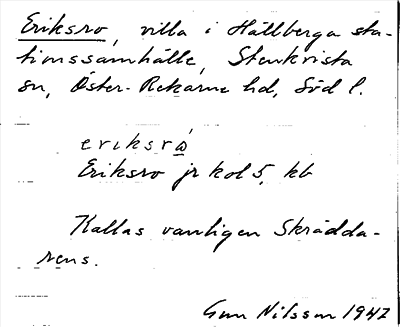 Eriksro, villa i Hållberga sta-
tionssamhälle, Stenkvista
sn, Öster-Rekarne hd, Söd l.
eriksrὼ
Eriksro jr kol 5, kb
Kallas vanligen Skrädda-
rens.
Gun Nilsson 1947